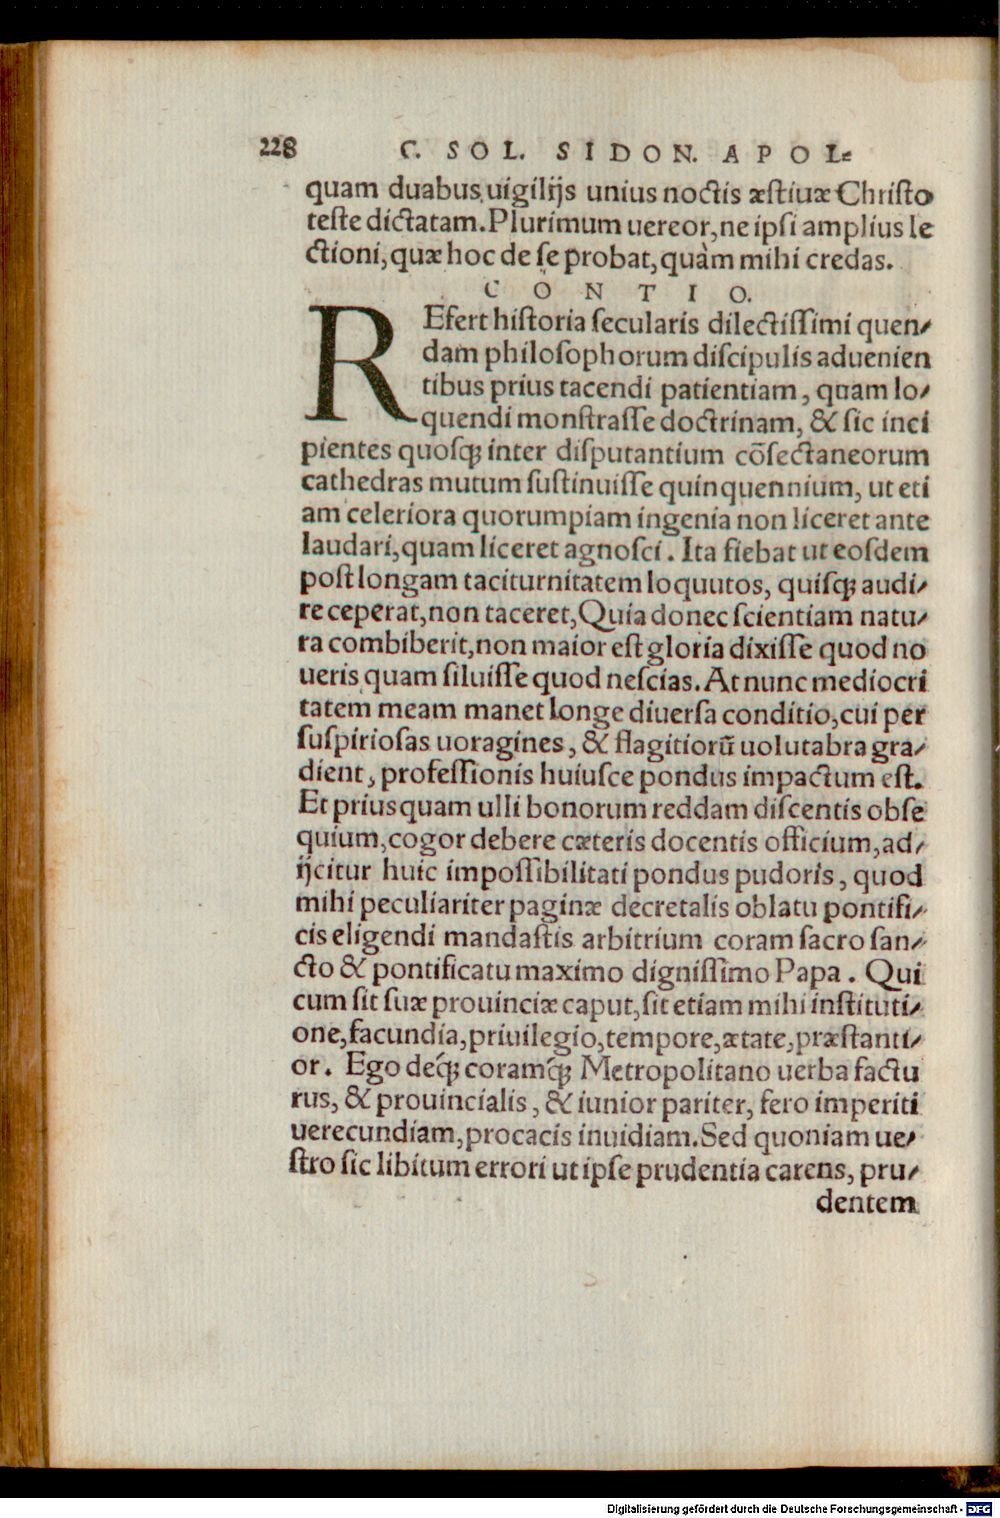 228 C. SOL. SIDON. APOL⸗
quam duabus uigilijs unius noctis æstiuæ Christo
teste dictatam. Plurimum uereor, ne ipsi amplius le
ctioni, quæ hoc de se probat, quàm mihi credas.
CONTIO.
REfert historia secularis dilectissimi quen⸗
dam philosophorum discipulis aduenien
tibus prius tacendi patientiam, quam lo⸗
quendi monstrasse doctrinam, & sic inci
pientes quosq; inter disputantium cõsectaneorum
cathedras mutum sustinuisse quinquennium, ut eti
am celeriora quorumpiam ingenia non liceret ante
laudari, quam liceret agnosci. Ita fiebat ut eosdem
post longam taciturnitatem loquutos, quisq; audi⸗
re ceperat, non taceret, Quia donec scientiam natu⸗
ra combiberit, non maior est gloria dixisse quod no
ueris quam siluisse quod nescias. At nunc mediocri
tatem meam manet longe diuersa conditio, cui per
suspiriosas uoragines, & flagitiorũ uolutabra gra⸗
dient, professionis huiusce pondus impactum est.
Et priusquam ulli bonorum reddam discentis obse
quium, cogor debere cæteris docentis officium, ad⸗
ijcitur huic impossibilitati pondus pudoris, quod
mihi peculiariter paginæ decretalis oblatu pontifi⸗
cis eligendi mandastis arbitrium coram sacro san⸗
cto & pontificatu maximo dignissimo Papa. Qui
cum sit suæ prouinciæ caput, sit etiam mihi instituti⸗
one, facundia, priuilegio, tempore, ætate, præstanti⸗
or. Ego deq́; coramq́; Metropolitano uerba factu
rus, & prouincialis, & iunior pariter, fero imperiti
uerecundiam, procacis inuidiam. Sed quoniam ue⸗
stro sic libitum errori ut ipse prudentia carens, pru⸗
dentem
Digitalisierung gefördert durch die Deutsche Forschungsgemeinschaft - DFG